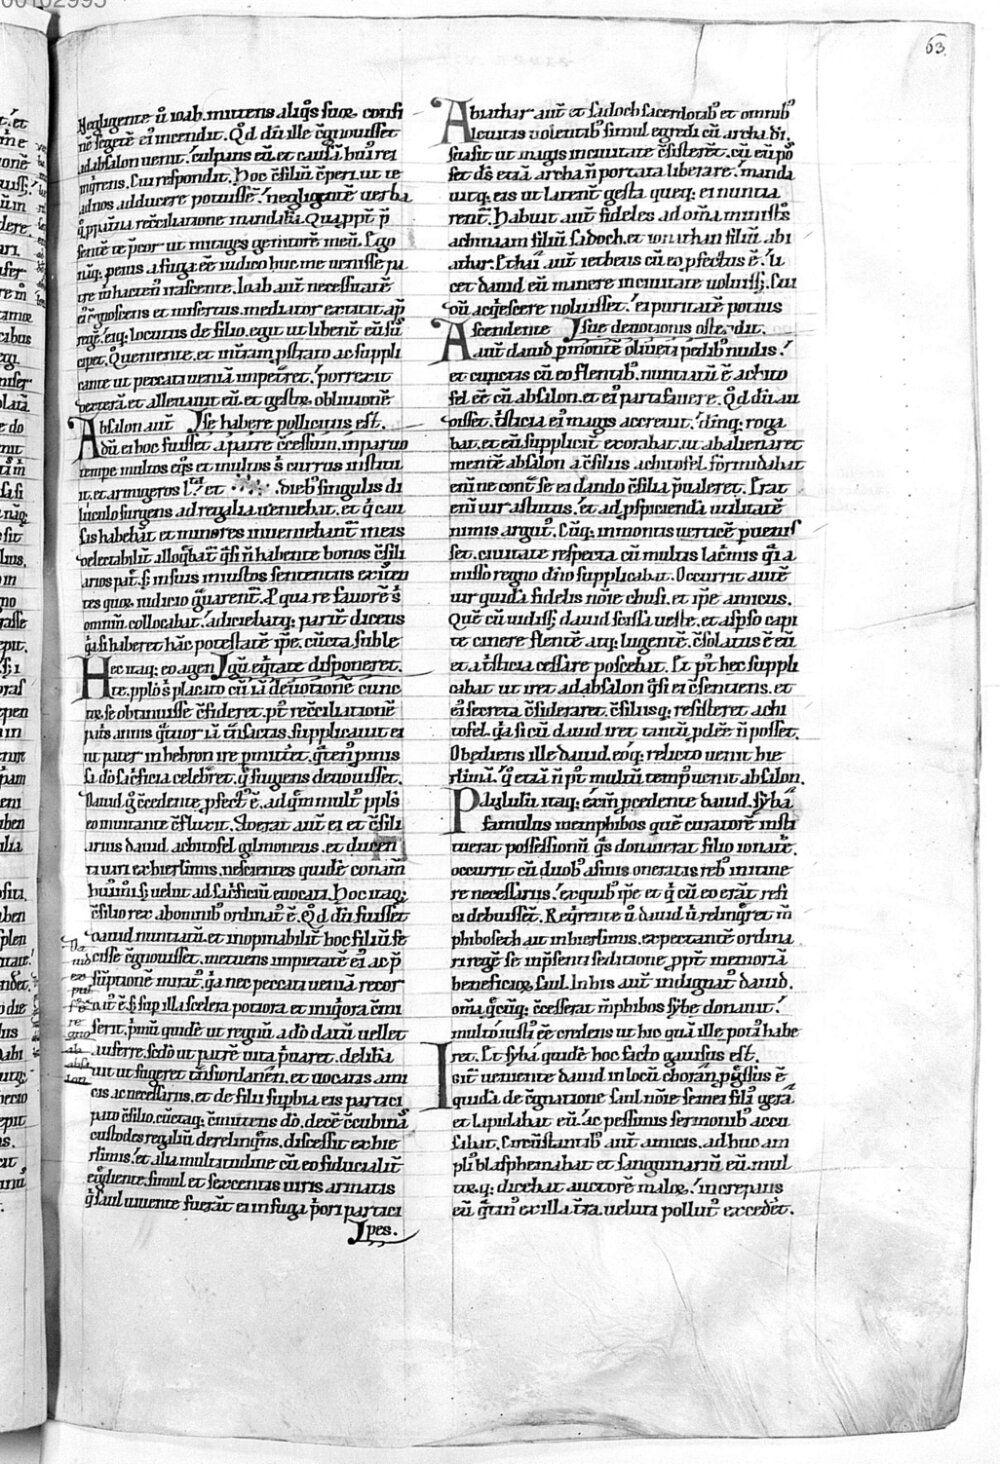 63
Negligente ů ioab. mittens aliqͦs suoꝝ confi
nē segetē eiꝰ incendit. Qd̾ dū ille c̄gnouisset
ad absalon uenit. culpans eū. et causā huiꝰ rei
inq̇rens. Cui respondit. Hoc c̄siliū c̄peri. ut te
ad nos adducere potuisse. negligente uerba
sentē te p̄cor ut mitiges genitorē meū. Ego
nāq; peius a fuga eē iudico huc me uenisse pa
tre in hacten̄ irascente. Ioab aut̄ necessitatē
eiꝰ c̄gnoscens et misertus. mediator extitit ap̄
regē. eiq; locutus de filio. egit ut libent̄ eū sus
cipet. Qͦ ueniente. et in trām pstrato ac suppli
cante ut peccati ueniā impet̄ret. porrexit
dexterā et alleuauit eū. et gestoꝝ obliuionē
Absalon aut̄ se habere pollicitus est.
dū ei hoc fuisset a patre c̄cessum. in paruo
tempe multos eqͦs et multos s̄ currus institu
it. et armigeros L.ta et . dieb; singulis di
luculo surgens ad regalia ueniebat. et q̇ cau
sas habebāt et minores inueniebant̄ meis
delectabilit̄ alloq̄bat̄ q̄si n̄ habente bonos c̄sili
arios pat̄. s; in suis iniustos sententiis existen
tes quoꝝ iudicio gͣuarent̄. Et qua re fauorē s̄
omniū collocabat. adiciebatq; parit̄ dicens
qa si haberet hāc potestatē ipe. cūcta suble
Hec itaq; eo agen gū. eq̇tate disponeret.
te. pplōs placato cū iā deuotionē cunc
toꝝ se obtinuisse c̄fideret. pt̄ recc̄iliationē
patris annis qͣtuor iā t̄nsactis. supplicauit ei
ut pater in hebron ire pmittet. q̄ten̄ pmis
sa dō sac̄ficia celebret. q̄ fugiens deuouisset.
Dauid gͦ c̄cedente pfectꝰ ē. ad qͦm multꝰ ppls̄
eo inuitante c̄fluxit. Aderat aut̄ ei et c̄sili
arius dauid achitofel gilmoneus. et ducen
ti uiri ex hierlimis. nescientes quidē conam̄
huiꝰmī. s; uelut ad sac̄ficiū euocati. Hoc itaq;
c̄silio rex ab omnib; ordinat̄ ē. Qd̾ dū fuisset
dauid nuntiatū. et inopinabilit̄ hoc filiū fe
cisse c̄gnouisset. metuens impietatē eiꝰ ac p̄
sūptionē mirat̄. qa nec peccati ueniā recor
dat̄ ē. s; sup illa scelera potiora et maiora c̄mi
serit. pmū quidē ut regnū a dō datū uellet
auferre. sc̄do ut patrē uita p̄uaret. delibā
uit ut fugeret t̄nsiordanen̄. et uocatis ami
cis ac necessariis. et de filii supbia eis partici
pato c̄silio. cūctaq; c̄mittens dō. decē c̄cubinas
custodes regaliū derelinq̄ns. discessit ex hie
rlimis. et alia multitudine cū eo fiducialit̄
egͦdiente. simul et sexcentis uiris armatis
q̇ saul uiuente fuerāt ei in fuga p̄ori partici
pes.
Abiathar aut̄ et sadoch sacerdotib; et omnib;
leuitas uolentib; simul egredi cū archa dī.
suasit ut magis in ciuitate c̄sisterēt. cū eū pos
set dō etiā archa n̄ portata liberare. manda
uitq; eis ut latent̄ gesta queq; ei nuntia
rent̄. Habuit aut̄ fideles ad oīa ministros
achimaam filiū sadoch. et ionathan filiū abi
athar. Ethai aut̄ ietheus cū eo pfectus ē. li
cet dauid eū manere in ciuitate uoluiss;. Cui
cū acq̇escere noluisset. ei puritatē potius
Ascendente sue deuotionis ostendit.
aut̄ dauid p monte oliueti pedib; nudis.
et cunctis cū eo flentib; nuntiatū ē achito
fel eē cū absalon. et eiꝰ parti fauere. Qd̾ dū au
disset. t̄sticia eiꝰ magis accreuit. dm̄q; roga
bat. et eū supplicit̄ exorabat. ut abalienaret
mentē absalon a c̄siliis achitofel. formidabat
enī ne cont̄ se ei dando c̄silia p̄ualeret. Erat
enī uir astutus. et ad pspicienda utilitatē
nimis argutꝰ. Cūq; in montis uertice peuenis
set. ciuitate respecta cū multis lac̄mis qͣsi a
misso regno dn̄o supplicabat. Occurrit autē
uir quidā fidelis noīe chusi. et ipe amicus.
Quē cū uidiss; dauid scissa ueste. et aspso capi
te cinere flentē atq; lugentē. c̄solatus ē eū
et a t̄sticia cessare poscebat. Et pt̄ hec suppli
cabat ut iret ad absalon q̄si ei c̄sentiens. et
eiꝰ secreta c̄sideraret. c̄siliisq; resisteret achi
tofel. qa si cū dauid iret tantū pdēe n̄ posset.
Obediens ille dauid. eoq; relicto uenit hie
rlimā. q̄ etiā n̄ pt̄ multū temp; uenit absalon.
Palulū itaq; exin̄ pcedente dauid. syba
famulus memphibos quē curatorē insti
tuerat possessionū q̄s donauerat filio ionathe.
occurrit cū duob; asinis oneratis reb; itine
re necessariis. ex quib; ipe et q̇ cū eo erāt refi
ci debuissēt. Req̇rente ů dauid ubi relinq̄ret m̄
phibosech. ait in hierlimis. expectante ordina
ri regē se in p̄senti seditione ppt̄ memoriā
beneficioꝝ saul. In his aut̄ indignat̄ dauid.
oīa q̄cūq; c̄cesserat m̄phibos sybe donauit.
multo iustiꝰ eē credens ut hic quā ille potiꝰ habe
ret. Et syba quidē hoc facto gauisus est.
Igit̄ ueniente dauid in locū choran p̄gssus ē
quidā de c̄gnatione saul noīe semei filiꝰ gera
et lapidabat eū. ac pessimis sermonib; accu
sabat. Circūstantib; aut̄ amicis. adhuc am
pliꝰ blasphemabat et sanguinariū eū. mul
toꝝq; dicebat auctorē maloꝝ. increpans
eū q̄tin̄ ex illa t̄ra ueluti pollutꝰ excedet̄.